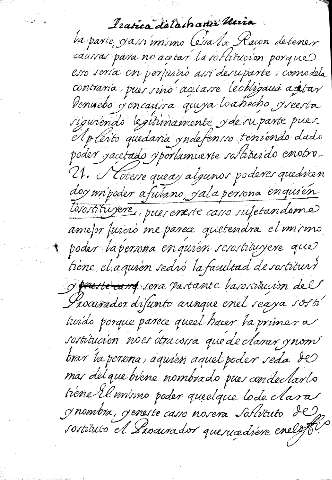 Pratica de la chancilleria
la parte, y assi mismo Cesa la Raçon de tener
caussas para no açetar la sostituçion porque
eso seria en perjuiçio assi de su parte, como de la
contraria, pues si no açetase le obligaria a citar
de nuebo y en caussa que ya lo a hecho y se esta
siguiendo legitimamente y de su parte pues
el pleito quedaria yndefensso teniendo dado
poder y açetado y por la muerte sostituido en otro
Notesse que ay algunos poderes que diçen
doy mi poder a fulano, y a la persona en quien
lo sostituyere, pues en este caso sujetandome
a mejor juiçio me parece que tendra el mismo
poder la persona en quien se sostituyere que
tiene el a quien se dio la facultad de sostituir
y sera bastante la sostituçion del
Procurador difunto aunque en el se aya sosti
tuido porque parece que el hacer la primera
sostituçion no es otra cossa que declarar y nom
brar la persona, a quien aquel poder se da de
mas del que biene nombrado pues con declararlo
tiene el mismo poder que el que lo declara
y nombra, y en este caso no sera sostituto de
sostituto el Procurador que suçediere en el offiº